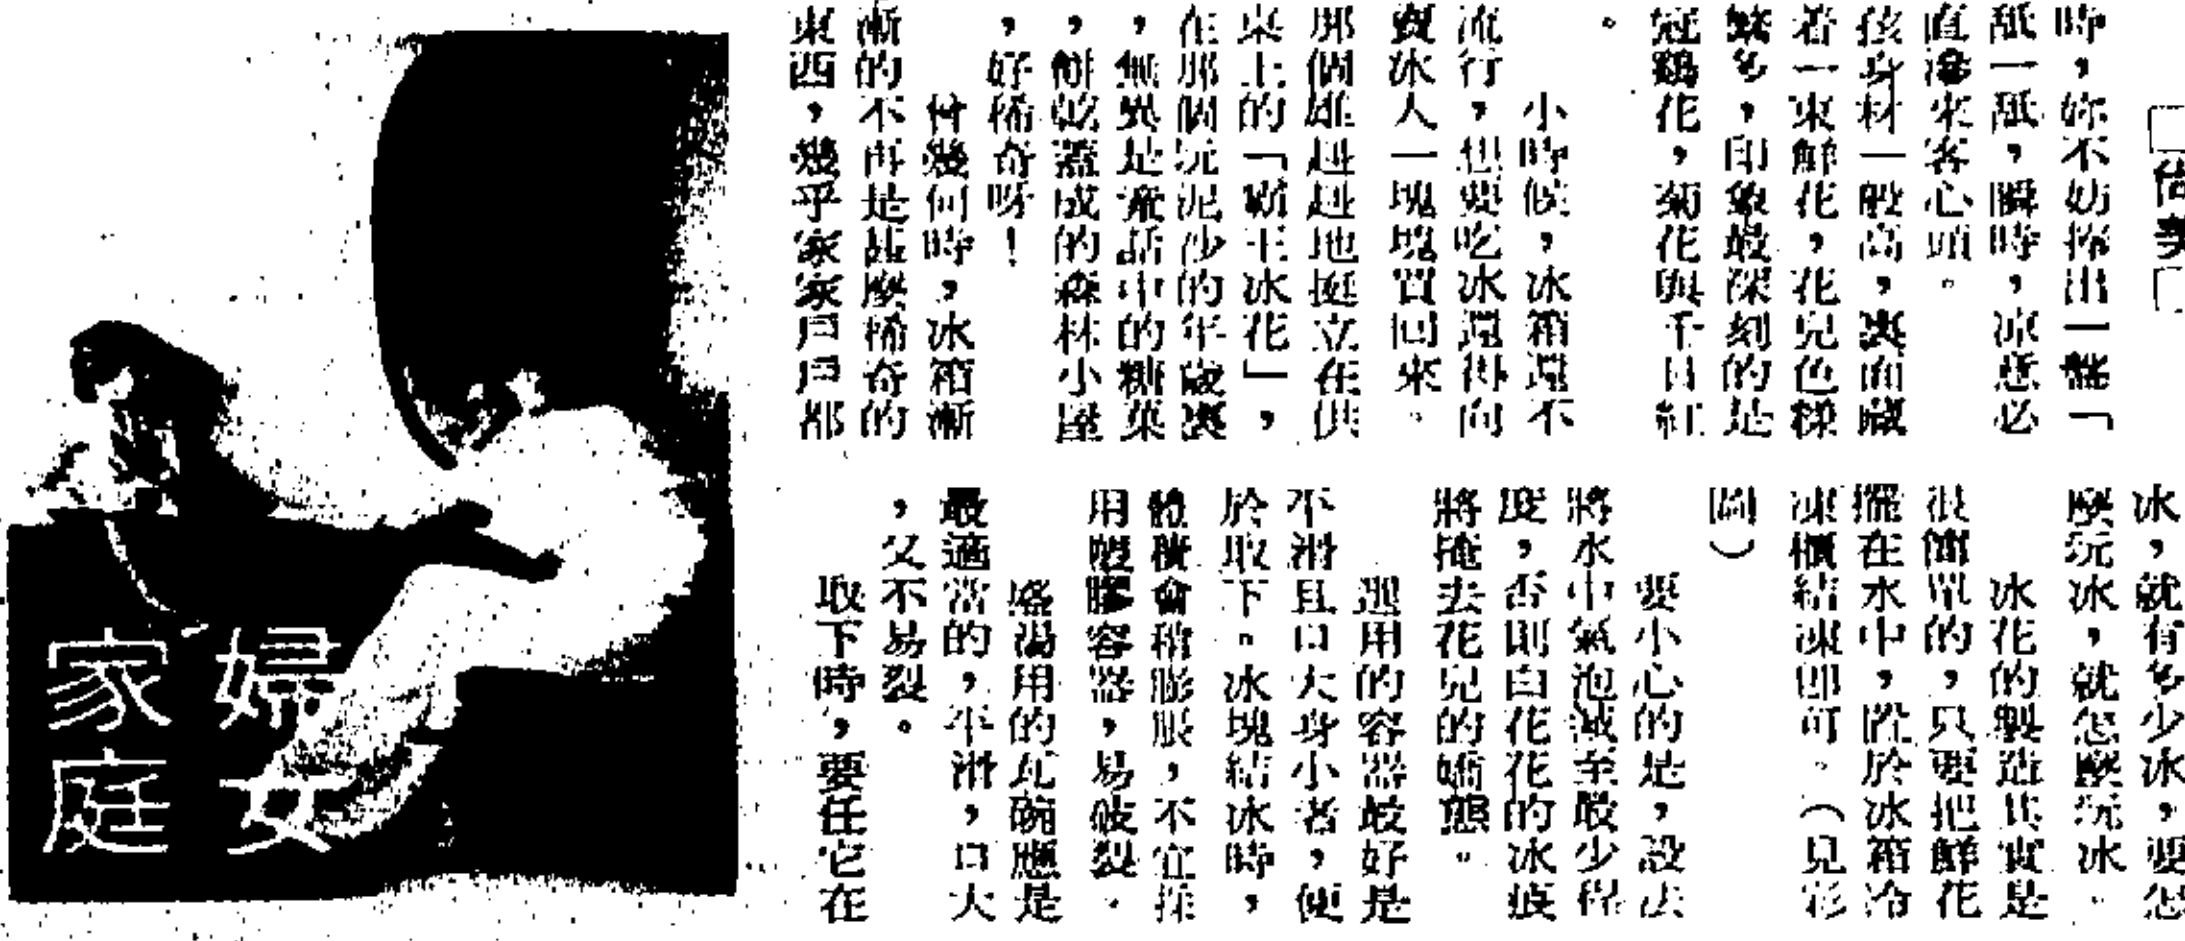 時，妳不妨捧出一盤「
舐一舐，瞬時，涼意必
直滲來客心頭。
孩身材一般高，裏面藏
着一束鮮花，花兒色樣
繁多，印象最深刻的是
冠鷄花，菊花與千日紅
。
小時候，冰箱還不
流行，想要吃冰還得向
賣冰人一塊塊買回來。
那個雄赳赳地挺立在供
桌上的「霸王冰花」，
在那個玩泥沙的年歲裏
，無異是童話中的糖菓
，餅乾蓋成的森林小屋
，好稀奇呀！
曾幾何時，冰箱漸
漸的不再是甚麼稀奇的
東西，幾乎家家戶戶都
冰，就有多少冰，要怎
麼玩冰，就怎麼玩冰。
冰花的製造其實是
很簡單的，只要把鮮花
擺在水中，置於冰箱冷
凍櫃結凍即可。（見彩
圖）
要小心的是，設法
將水中氣泡減至最少程
度，否則白花花的冰痕
將掩去花兒的嬌態。
選用的容器最好是
不滑且口大身小者，便
於取下。冰塊結冰時，
體積會稍膨脹，不宜採
用塑膠容器，易破裂。
盛湯用的瓦碗應是
最適當的，平滑，口大
，又不易裂。
取下時，要任它在
婦女
家庭